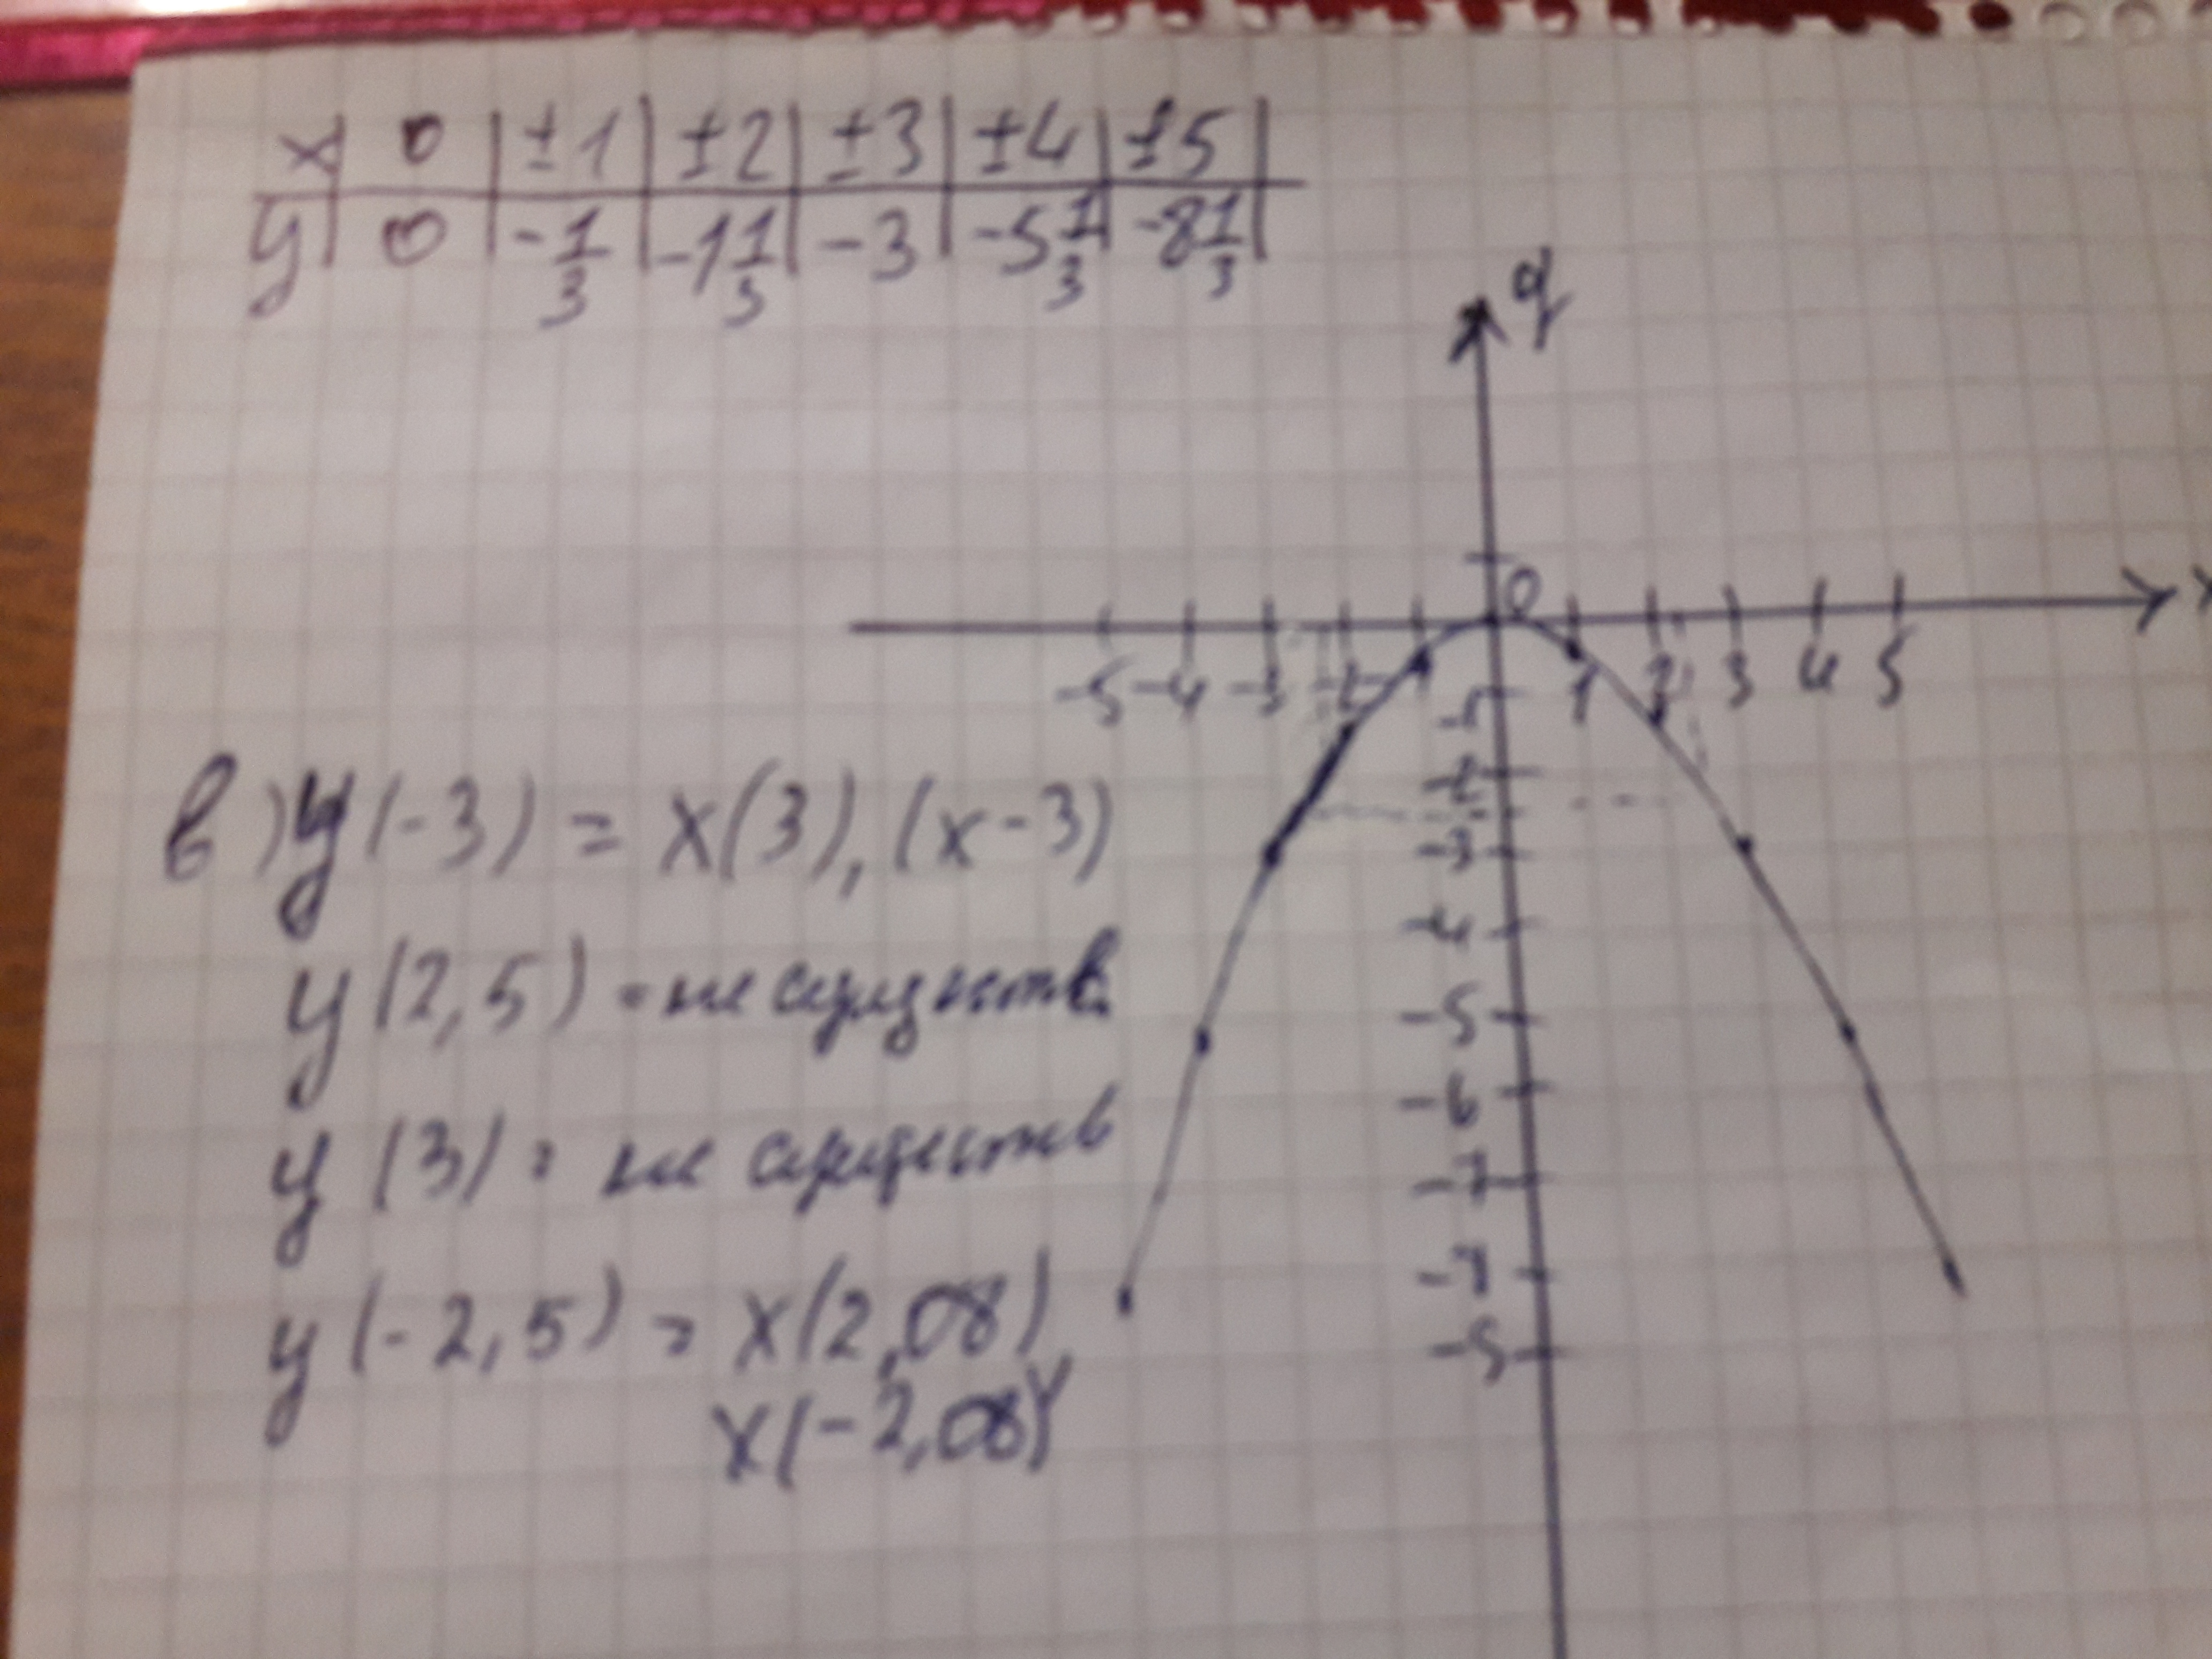 x | 0 | ±1 | ±2 | ±3 | ±4 | ±5 |
y | 0 | -1/3 | -1 1/3 | -3 | -5 1/3 | -8 1/3 |
y
0
x
-5 -4 -3 -2 1 2 3 4 5
-1
-2
-3
-4
-5
-6
-7
в) y(-3) = x(3), (x-3)
y(2,5) - не существ.
y(3) = не существ
y(-2,5) = x(2,08)
x(-2,08)